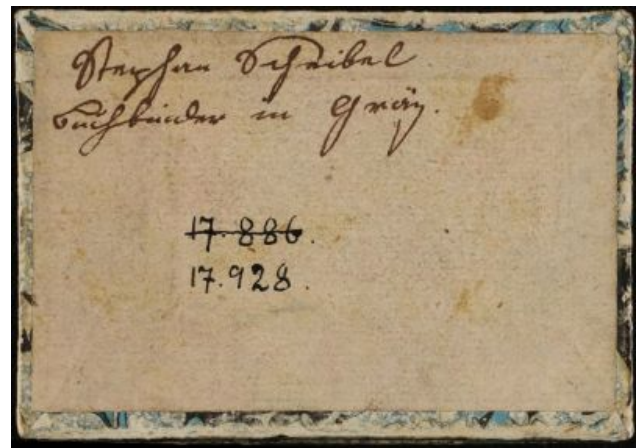 Stephan Scheibel
Buchbinder in Gräz.
17.886.
17.928.